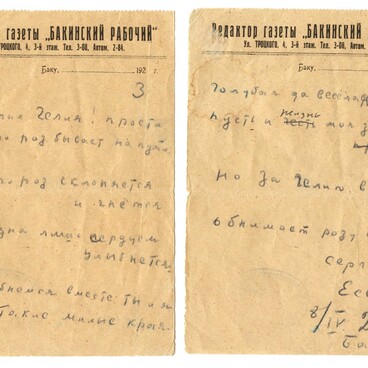 газеты „БАКИНСКИЙ РАБОЧИЙ“
ТРОЦКОГО, 4, 3-й этаж. Тел. 3-08, Автом. 2-84.
Баку, 192 г.
3
Гелия! прости
роз бывает на пути
роз склоняется
и гнется
дна лишь сердцем
улыбнется
бнемся вместе ты и я
такие милые края.
Редактор газеты „БАКИНСКИЙ
Ул. ТРОЦКОГО, 4, 3-й этаж. Тел. 3-08, Автом.
Баку,
Голубая да весела
жизнь
пусть и честь моя з
но за Гелию в
обнимает розу
Серг
Есе
8/IV 2
Ба